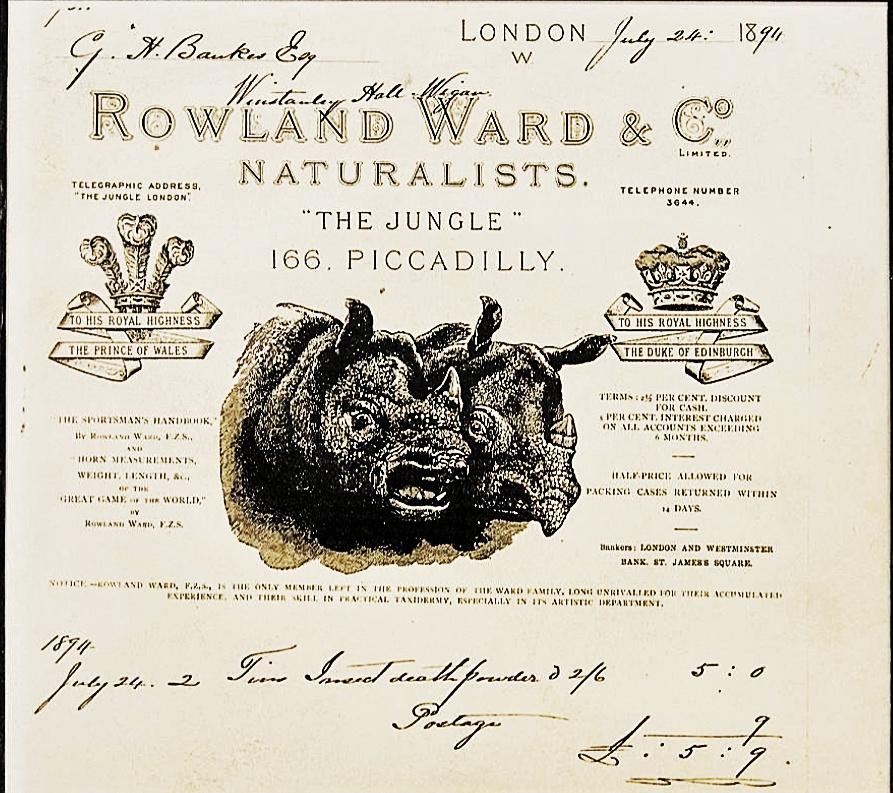 G. H. Bankes Esq
LONDON July 24: 1894
W.
Winstanley Hall Wigan.
ROWLAND WARD & Co
LIMITED.
NATURALISTS.
TELEGRAPHIC ADDRESS,
"THE JUNGLE LONDON".
TELEPHONE NUMBER
3644.
"THE JUNGLE"
166, PICCADILLY.
TO HIS ROYAL HIGHNESS
THE PRINCE OF WALES
TO HIS ROYAL HIGHNESS
THE DUKE OF EDINBURGH
"THE SPORTSMAN'S HANDBOOK,"
By ROWLAND WARD, F.Z.S.,
AND
"HORN MEASUREMENTS,
WEIGHT, LENGTH, &c.,
OF THE
"GREAT GAME OF THE WORLD,"
BY
ROWLAND WARD, F.Z.S.
TERMS: 2½ PER CENT. DISCOUNT
FOR CASH.
5 PER CENT. INTEREST CHARGED
ON ALL ACCOUNTS EXCEEDING
6 MONTHS.
HALF-PRICE ALLOWED FOR
PACKING CASES RETURNED WITHIN
14 DAYS.
Bankers: LONDON AND WESTMINSTER
BANK, ST. JAMES'S SQUARE.
NOTICE.—ROWLAND WARD, F.Z.S., IS THE ONLY MEMBER LEFT IN THE PROFESSION OF THE WARD FAMILY, LONG UNRIVALLED FOR THEIR ACCUMULATED
EXPERIENCE, AND THEIR SKILL IN PRACTICAL TAXIDERMY, ESPECIALLY IN ITS ARTISTIC DEPARTMENT.
1894
July 24. 2 Tins Insect death powder @ 2/6 5 : 0
Postage 9
£ : 5 : 9.